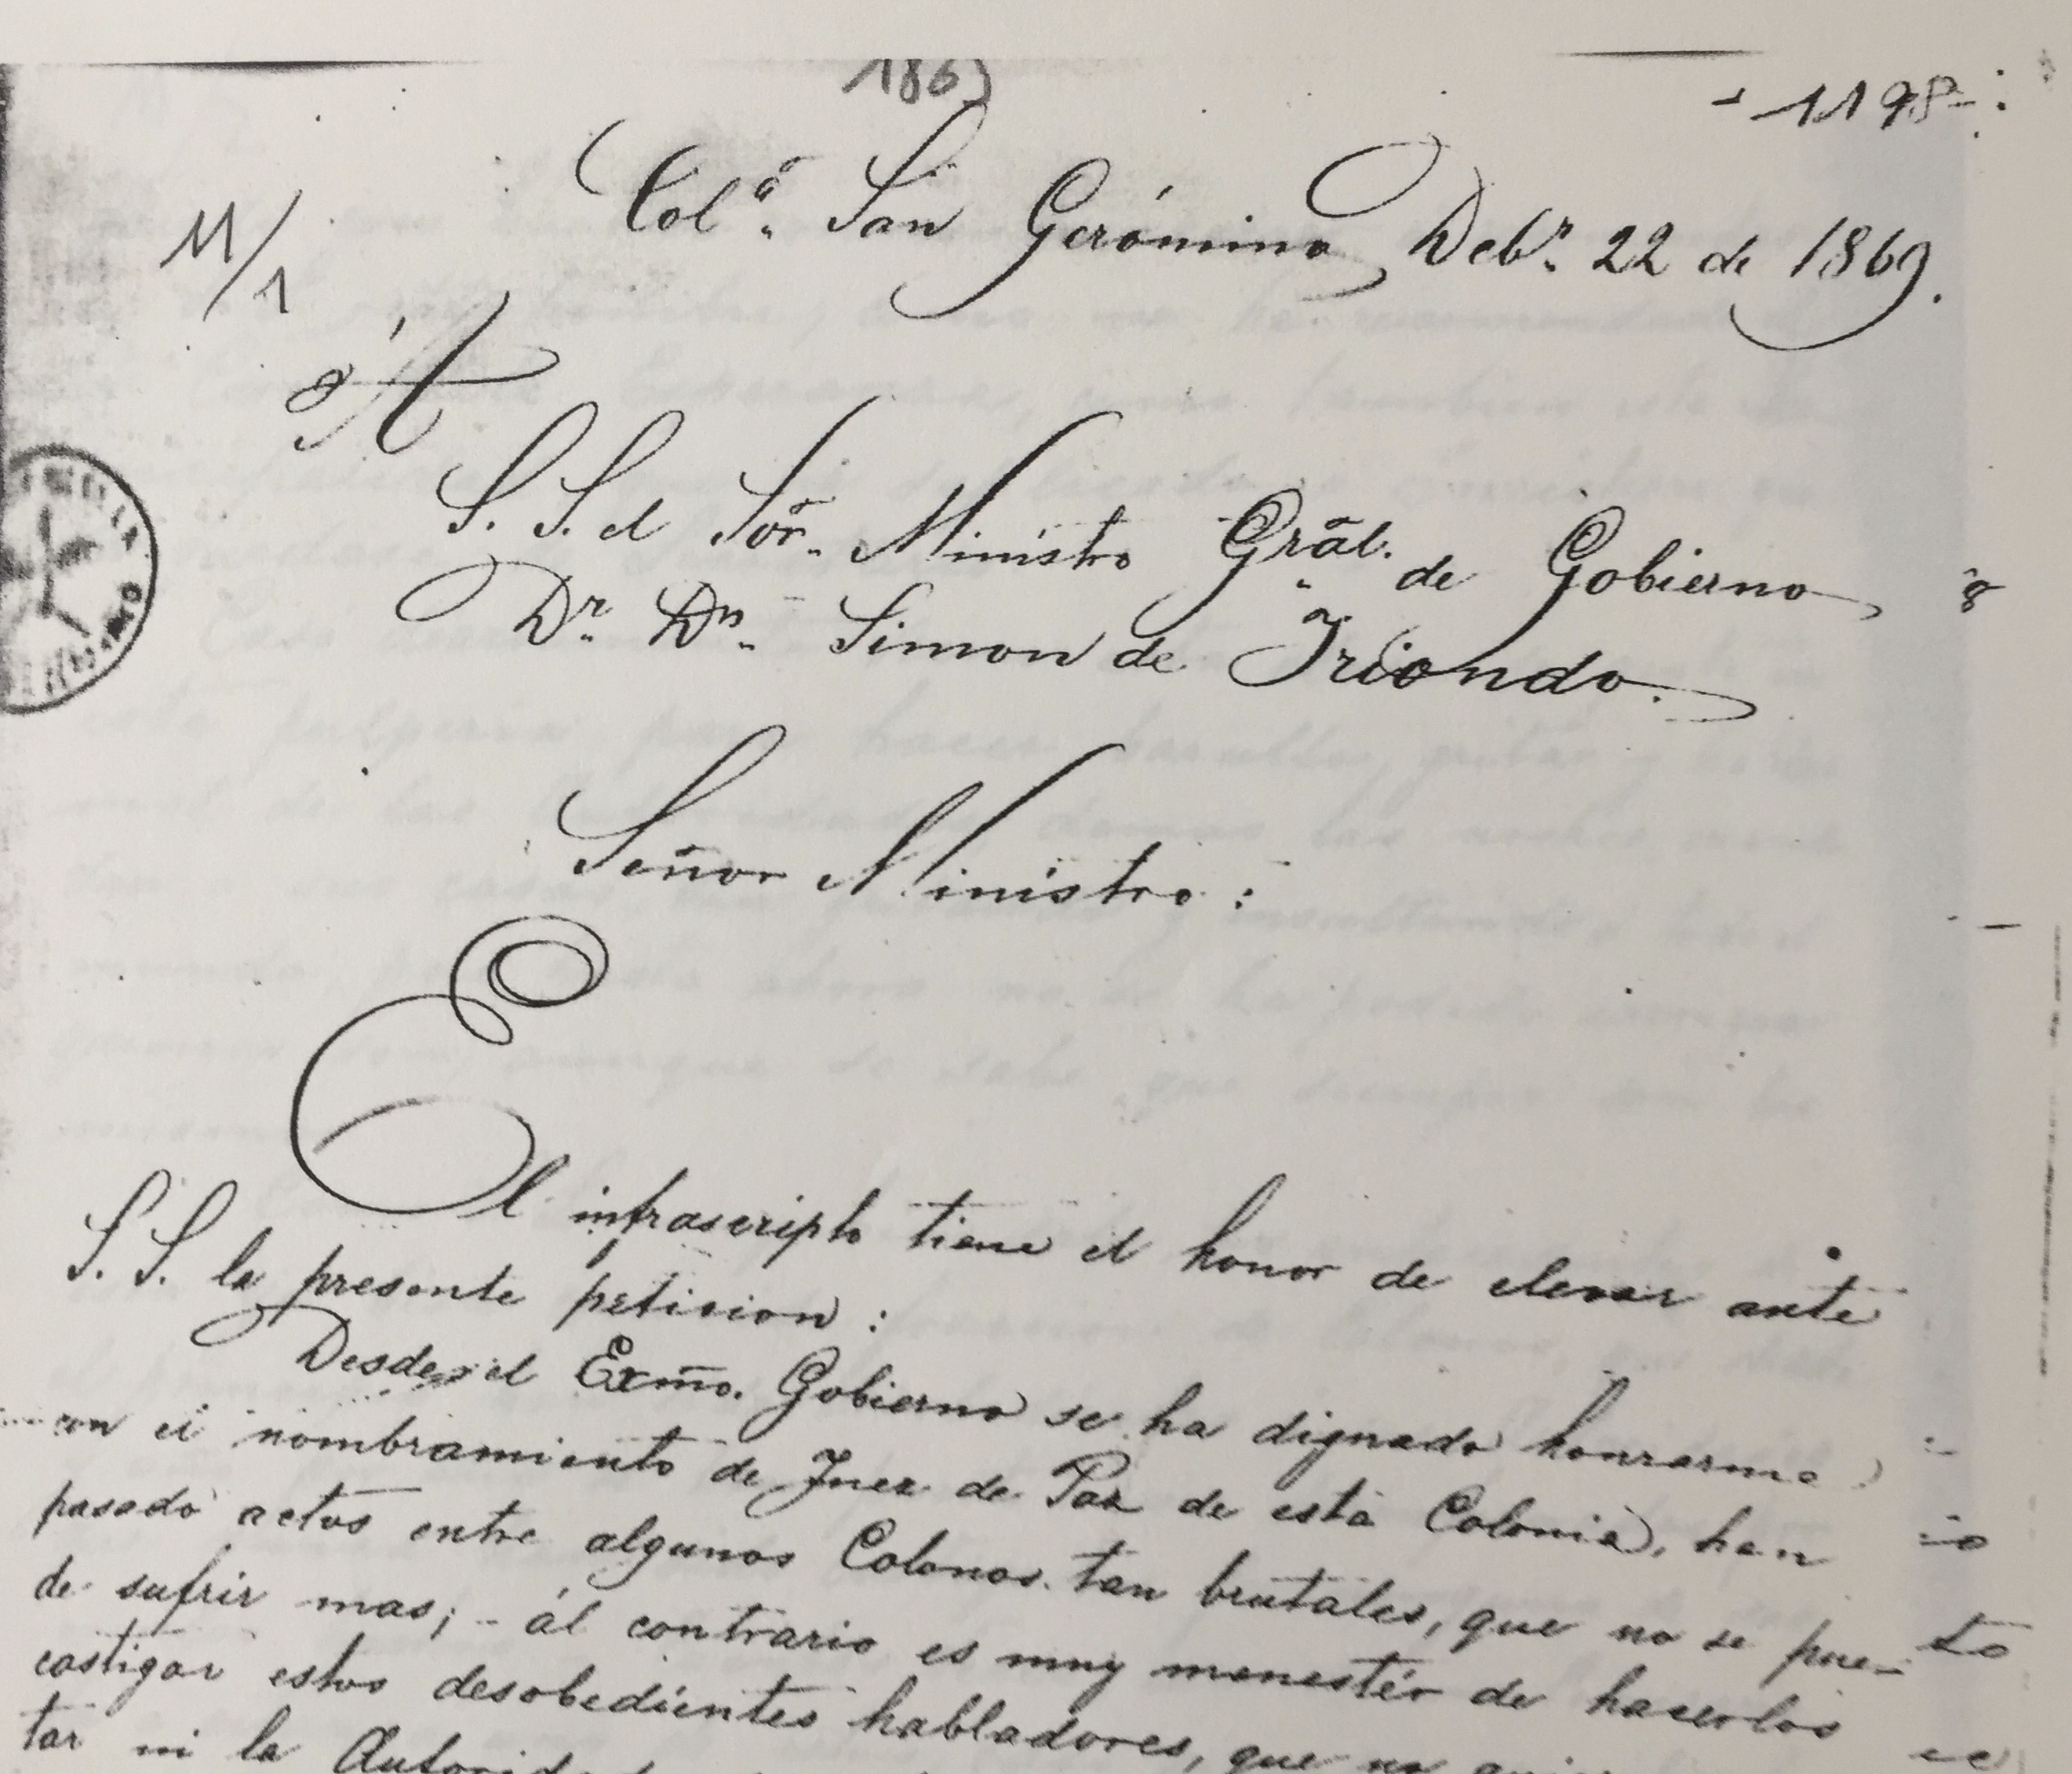 186
- 1198 -
Colª. San Gerónimo, Debr. 22 de 1869.
11/1
A
S. S. el Sõr. Ministro Grãl. de Gobierno
Dr. Dn. Simon de Iriondo.
Señor Ministro :
El infrascripto tiene el honor de elevar ante
S. S. la presente peticion :
Desde el Exm̃o. Gobierno se ha dignado honrarme
con el nombramiento de Juez de Paz de esta Colonia, han
pasado actos entre algunos Colonos tan brutales, que no se pue-
de sufrir mas; - ál contrario es muy menestér de hacerlos
castigar estos desobedientes habladores, que no
tar ni la